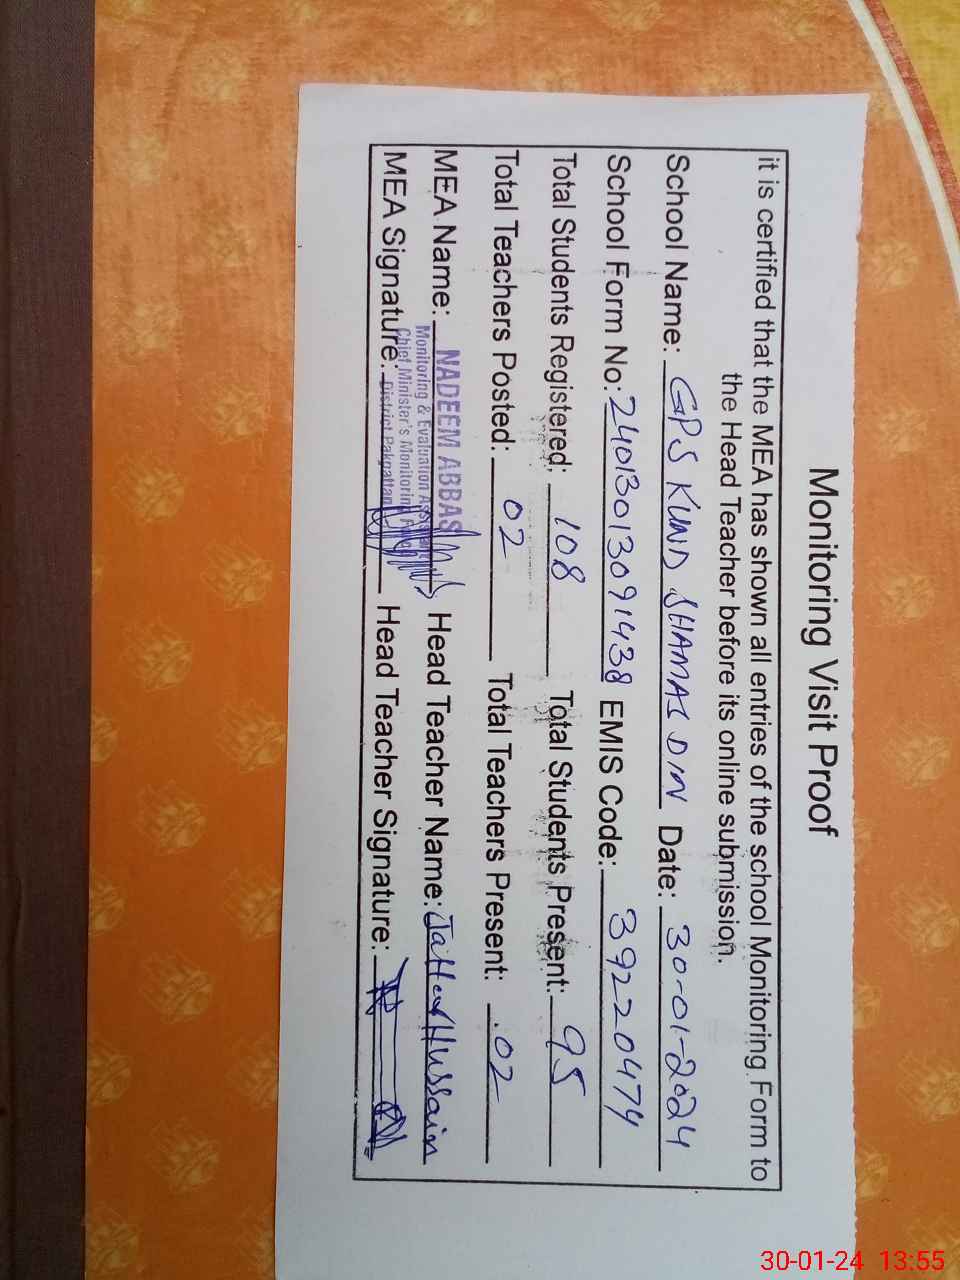 Monitoring Visit Proof
it is certified that the MEA has shown all entries of the school Monitoring Form to
the Head Teacher before its online submission.
School Name: GPS KUND SHAMAS DIN Date: 30-01-2024
School Form No: 24013013091438 EMIS Code: 39220474
Total Students Registered: 108 Total Students Present: 95
Total Teachers Posted: 02 Total Teachers Present: 02
MEA Name: NADEEM ABBAS Head Teacher Name: Hussain
Monitoring & Evaluation
Chief Minister's Monitoring
District Pakpattan
MEA Signature: Head Teacher Signature:
30-01-24 13:55